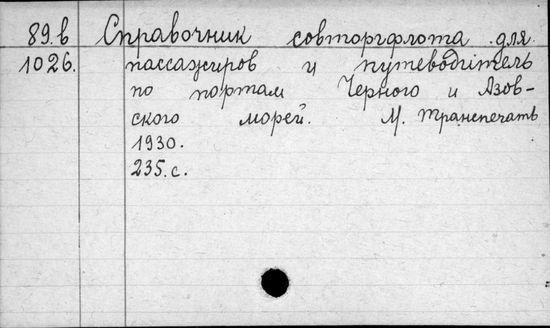 89.в Справочник совторгфлота для
1026. пассажиров и путеводитель
по портам Черного и Азов-
ского морей. М. Транспечать
1930.
235.с.